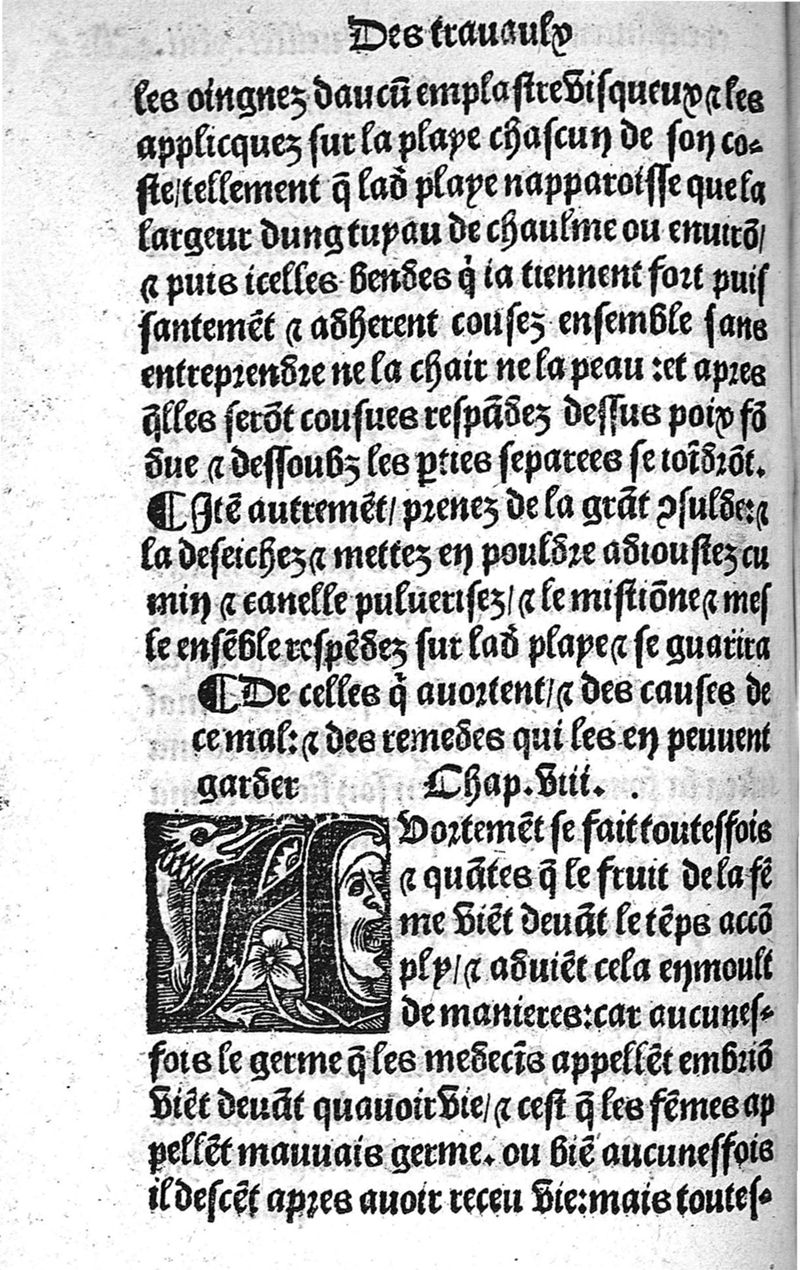 Des trauaulx
les oingnez daucū emplastre visqueux ⁊ les
applicquez sur la playe chascun de son co⸗
ste/tellement q̄ lad̄ playe napparoisse que la
largeur dung tuyau de chaulme ou enuirō/
⁊ puis icelles bendes q̇ ia tiennent fort puis
santemēt ⁊ adherent cousez ensemble sans
entreprendre ne la chair ne la peau :et apres
q̄lles serōt cousues respādez dessus poix fō
due ⁊ dessoubz les ꝑties separees se ioīdrōt.
¶ Itē autremēt/ prenez de la grāt ꝯsulde:⁊
la deseichez ⁊ mettez en pouldre adioustez cu
min ⁊ canelle puluerisez/ ⁊ le mistiōne ⁊ mes
le ensēble respēdez sur lad̄ playe ⁊ se guarira
¶ De celles q̇ auortent/ ⁊ des causes de
ce mal: ⁊ des remedes qui les en peuuent
garder Chap. viii.
AVortemēt se fait toutesfois
⁊ quātes q̄ le fruit de la fē
me viēt deuāt le tēps accō
ply/ ⁊ aduiēt cela en moult
de manieres:car aucunes⸗
fois le germe q̄ les medecīs appellēt embriō
viēt deuāt quauoir vie/ ⁊ cest q̄ les fēmes ap
pellēt mauuais germe. ou biē aucunesfois
il descēt apres auoir receu vie:mais toutes⸗